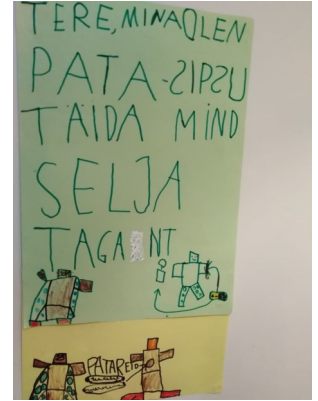 TERE, MINA OLEN
PATA-SIPSU
TÄIDA MIND
SELJA
TAGANT
PATAREID